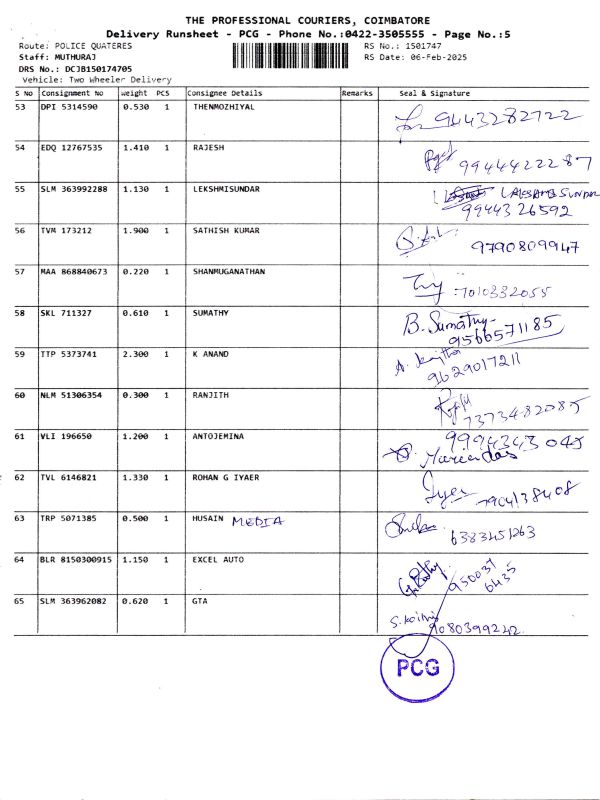 THE PROFESSIONAL COURIERS, COIMBATORE
Delivery Runsheet - PCG - Phone No.:0422-3505555 - Page No.:5
Route: POLICE QUATERES RS No.: 1501747
Staff: MUTHURAJ RS Date: 06-Feb-2025
DRS No.: DCJB150174705
Vehicle: Two Wheeler Delivery
S No Consignment No Weight PCS Consignee Details Remarks Seal & Signature
53 DPI 5314590 0.530 1 THENMOZHIYAL 9443282722
54 EDQ 12767535 1.410 1 RAJESH 9944422287
55 SLM 363992288 1.130 1 LEKSHMISUNDAR
9944326592
56 TVM 173212 1.900 1 SATHISH KUMAR 9790809947
57 MAA 868840673 0.220 1 SHANMUGANATHAN 7010332055
58 SKL 711327 0.610 1 SUMATHY B. Sumathy
9566571185
59 TTP 5373741 2.300 1 K ANAND
9629017211
60 NLM 51306354 0.300 1 RANJITH
7373482085
61 VLI 196650 1.200 1 ANTOJEMINA 9994343045
62 TVL 6146821 1.330 1 ROHAN G IYAER Iyer 7904138408
63 TRP 5071385 0.500 1 HUSAIN MEDIA 6383451263
64 BLR 8150300915 1.150 1 EXCEL AUTO 950037
6435
65 SLM 363962082 0.620 1 GTA
9080399242
PCG